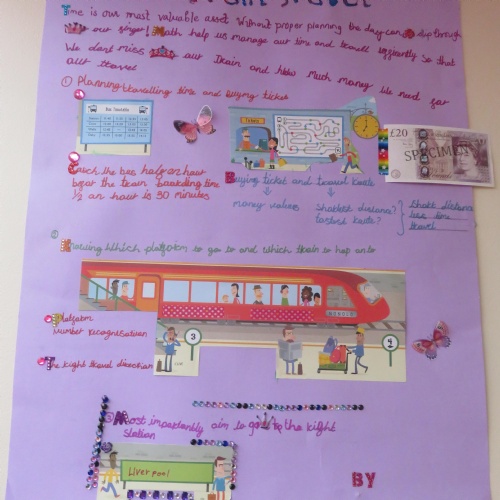 Time is our must valuable asset Without proper planning the day can slip through
our finger! Math help us manage our tim and travell efficiently so that
We dont miss our train and how Much money We need for
our travel
① Planning travelling time and buying ticket
Bus Timetable
Tickets
£20
SPECIMEN
Catch the bas half an hour
befor the train boarding time
½ an hour is 30 minutes
Buying ticket and travel route
money values
Shortest distance?
fastest route?
Short distance
less time
travel
② Knowing Which platform to go to and which train to hop onto
Platform
Number recognisation
The right travel direction
3
4
③ Most importantly aim to go to the right
station
Liverpool
BY